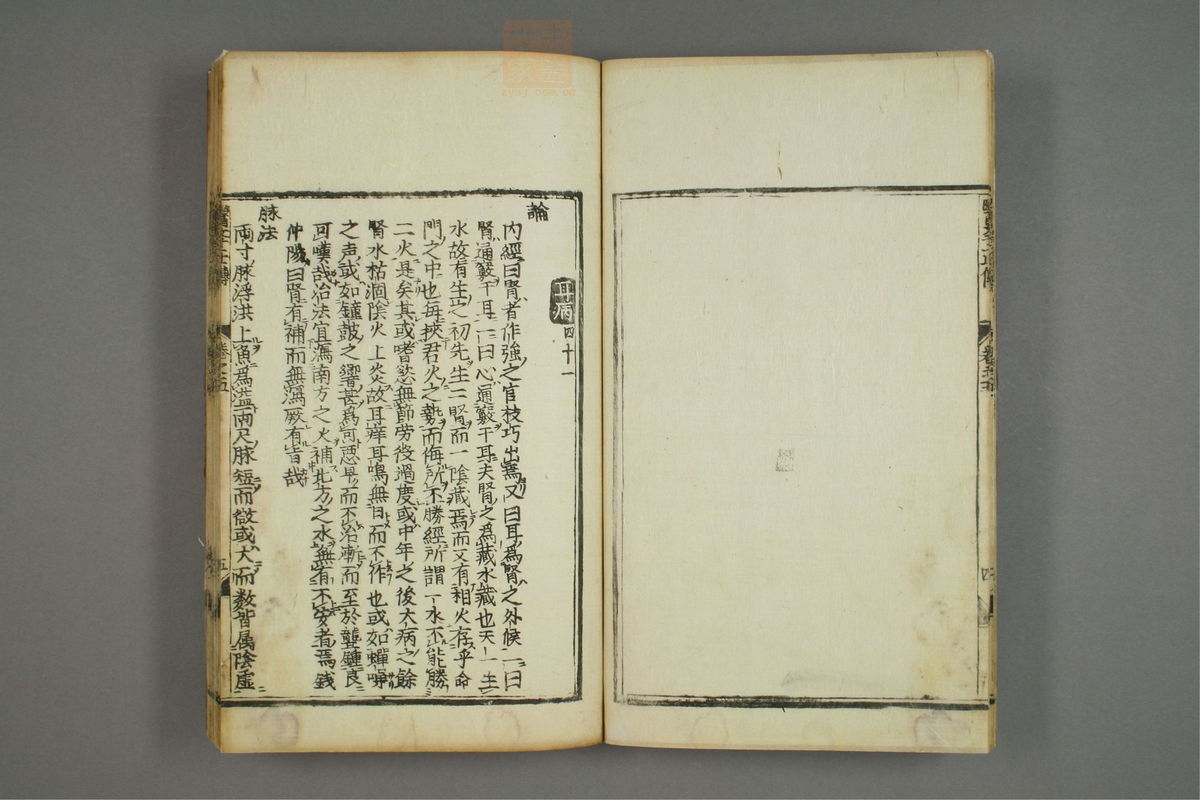 耳病 四十一
論
内經曰腎者作強之官技巧出焉又曰耳為腎之外候一曰
腎通竅于耳一曰心通竅于耳夫腎之為藏水藏也天一生
水故有生之初先生二腎而一陰藏焉而又有相火存乎命
門之中也每挾君火之勢而侮所不勝經所謂一水不能勝
二火是矣其或嗜慾無節勞役過度或中年之後大病之餘
腎水枯涸陰火上炎故耳痒耳鳴無日而不作也或如蟬噪
之声或如鐘鼓之響甚為可惡早而不治漸而至於聾鍾良
可嘆哉治法宜瀉南方之火補北方之水無有不安者焉錢
仲陽曰腎有補而無瀉厥有旨哉
脉法
兩寸脉浮洪上魚為溢兩尺脉短而微或大而数皆属陰虚
卷之五
五
四
zysj.com.cn